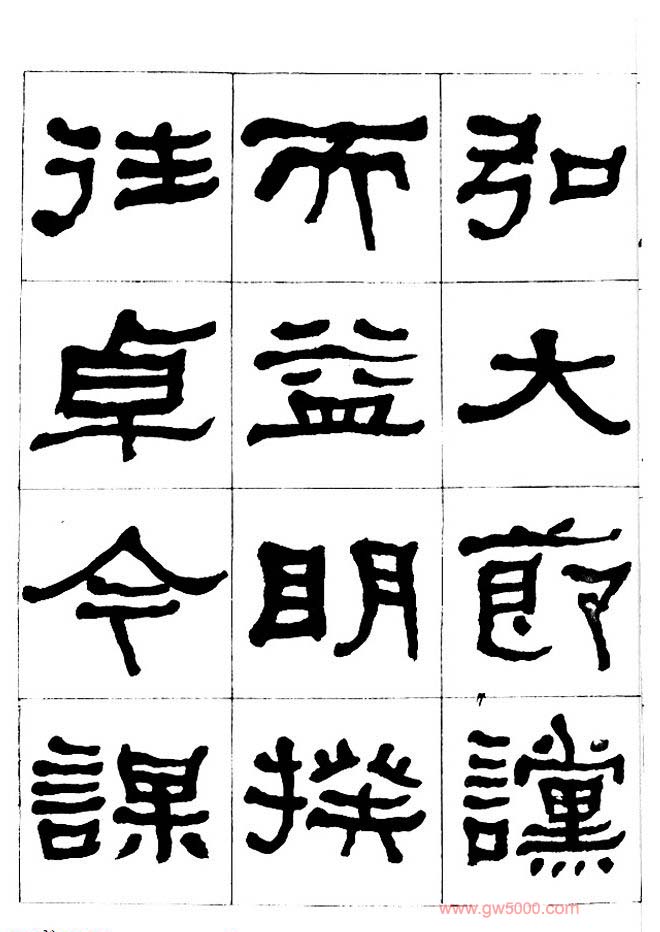 弘大節讜
而益明揆
往卓今謀
www.gw5000.com